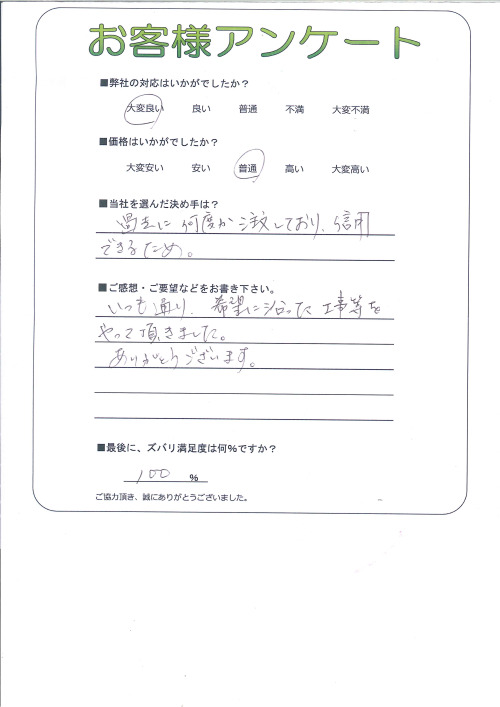 お客様アンケート
■弊社の対応はいかがでしたか?
大変良い 良い 普通 不満 大変不満
■価格はいかがでしたか?
大変安い 安い 普通 高い 大変高い
■当社を選んだ決め手は?
過去に何度か注文しており、信用
できるため。
■ご感想・ご要望などをお書き下さい。
いつも通り、希望に沿った工事等を
やって頂きました。
ありがとうございます。
■最後に、ズバリ満足度は何%ですか?
100 %
ご協力頂き、誠にありがとうございました。